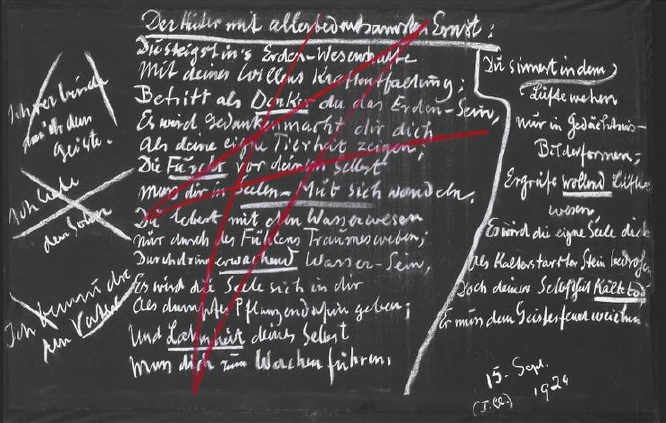 Der Hüter mit allerbedeutsamsten Ernst:
Du steigst in's Erden-Wesenhafte
Mit deines Willens Kraftentfaltung;
Betritt als Denker du das Erden-Sein,
Es wird Gedankenmacht dir dich
Als deine eigne Tierheit zeigen;
Die Furcht vor deinem Selbst
muss dir in Seelen-Mut sich wandeln.
Du lebest mit dem Wasserwesen
nur durch des Fühlens Traumesweben;
Durchdringe erwachend Wasser-Sein,
Es wird die Seele sich in dir
Als dumpfes Pflanzendasein geben;
Und Lahmheit deines Selbst
muss dich zum Wachen führen.
Du sinnest in dem
Lüftewehen
nur in Gedächtnis-
Bilderformen;
Ergreife wollend Lüfte-
wesen,
Es wird die eigne Seele dich
Als kalterstarrter Stein bedrohn;
Doch deiner Selbstheit Kältetod
Er muss dem Geistesfeuer weichen
Ich
ich dem
Geiste.
Ich liebe
den Sohn
Ich
den Vater
15. Sept.
1924